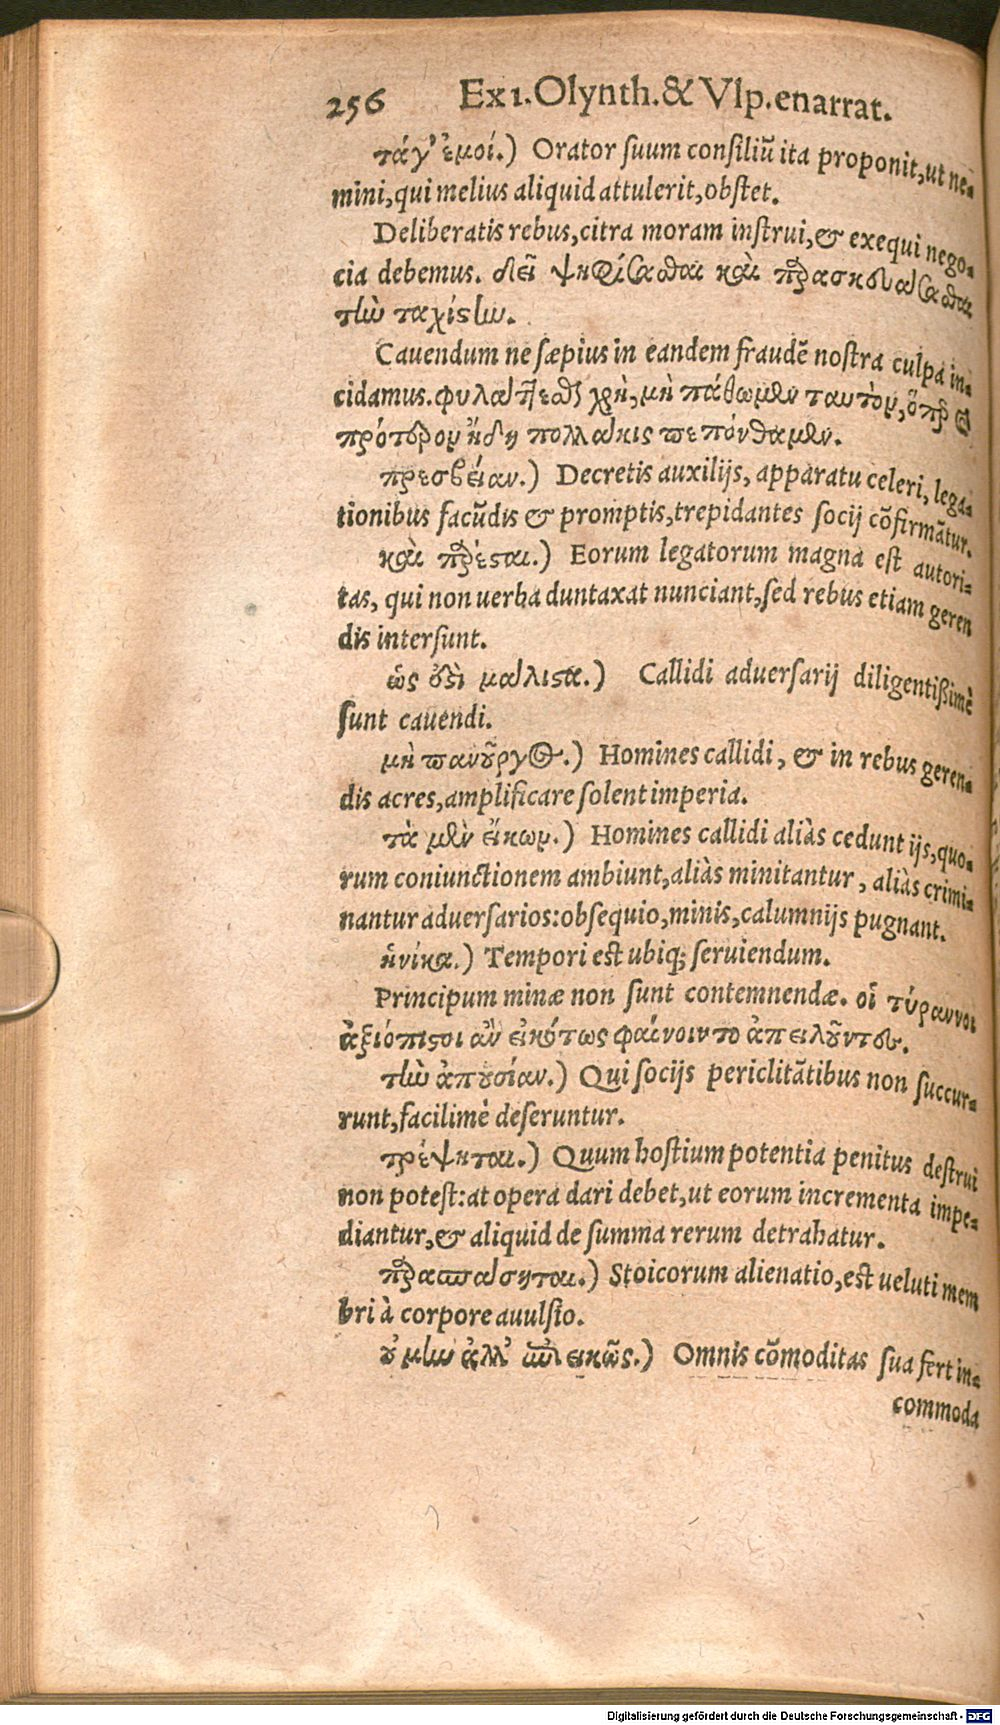 256 Ex 1. Olynth. & Vlp. enarrat.
τάγ' ἐμοί.) Orator suum consiliũ ita proponit, ut ne-
mini, qui melius aliquid attulerit, obstet.
Deliberatis rebus, citra moram instrui, & exequi nego-
cia debemus. δεῖ ψηφίσασθαι καὶ παρασκευάσασθαι
τὴν ταχίστην.
Cauendum ne sæpius in eandem fraudẽ nostra culpa in-
cidamus. φυλάττεσθαι χρὴ, μὴ πάθωμεν ταυτὸν, ὅπερ καὶ
πρότερον ἤδη πολλάκις πεπόνθαμεν.
πρεσβείαν.) Decretis auxilijs, apparatu celeri, lega-
tionibus facũdis & promptis, trepidantes socij cõfirmãtur.
καὶ παρέσται.) Eorum legatorum magna est autori-
tas, qui non uerba duntaxat nunciant, sed rebus etiam geren
dis intersunt.
ὡς ἔστι μάλιστα.) Callidi aduersarij diligentißimè
sunt cauendi.
μὴ πανοῦργος.) Homines callidi, & in rebus geren-
dis acres, amplificare solent imperia.
τὰ μὲν εἴκων.) Homines callidi aliàs cedunt ijs, quo-
rum coniunctionem ambiunt, aliàs minitantur, aliàs crimi-
nantur aduersarios: obsequio, minis, calumnijs pugnant.
ἡνίκα.) Tempori est ubiq; seruiendum.
Principum minæ non sunt contemnendæ. οἱ τύραννοι
ἀξιόπιστοι ἂν εἰκότως φαίνοιντο ἀπειλοῦντες.
τὴν ἀπουσίαν.) Qui socijs periclitãtibus non succur-
runt, facilimè deseruntur.
τρέψηται.) Quum hostium potentia penitus destrui
non potest: at opera dari debet, ut eorum incrementa impe-
diantur, & aliquid de summa rerum detrahatur.
παρασπάσηται.) Stoicorum alienatio, est ueluti mem
bri à corpore auulsio.
οὐ μὴν ἀλλ' ἐπιεικῶς.) Omnis cõmoditas sua fert in-
commoda
Digitalisierung gefördert durch die Deutsche Forschungsgemeinschaft - DFG